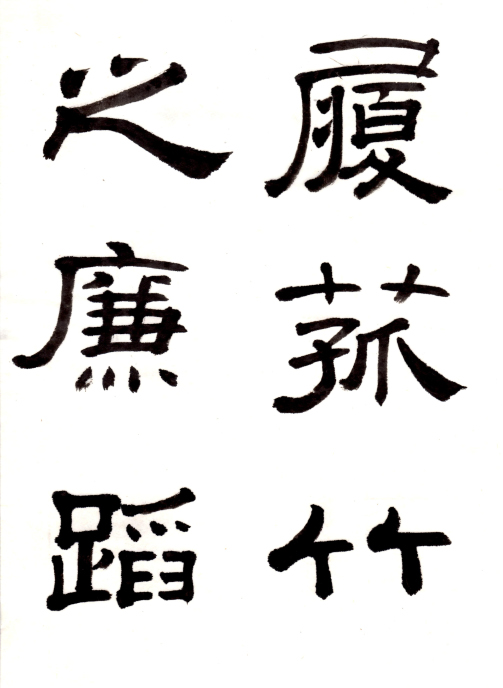 履菰竹
之廉蹈